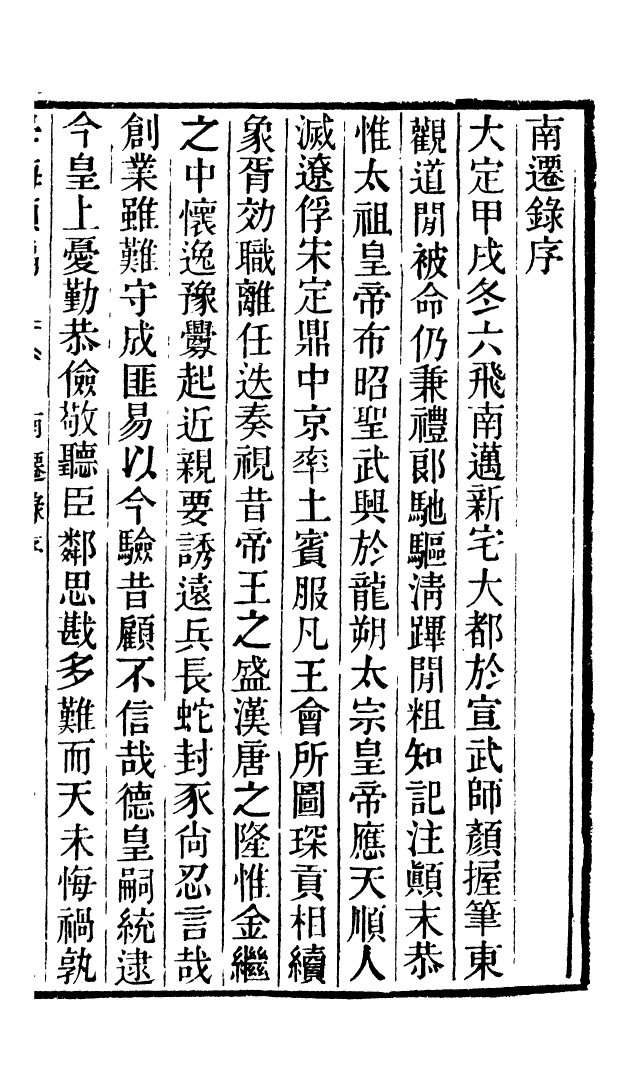 南遷錄序
大定甲戌冬六飛南邁新宅大都於宣武師顏握筆東
觀道閒被命仍秉禮郞馳驅淸蹕閒粗知記注顚末恭
惟太祖皇帝布昭聖武興於龍朔太宗皇帝應天順人
滅遼俘宋定鼎中京率土賓服凡王會所圖琛貢相續
象胥効職離任迭奏視昔帝王之盛漢唐之隆惟金繼
之中懷逸豫釁起近親要誘遠兵長蛇封豕尙忍言哉
創業雖難守成匪易以今驗昔顧不信哉德皇嗣統逮
今皇上憂勤恭儉敬聽臣鄰思戡多難而天未悔禍孰